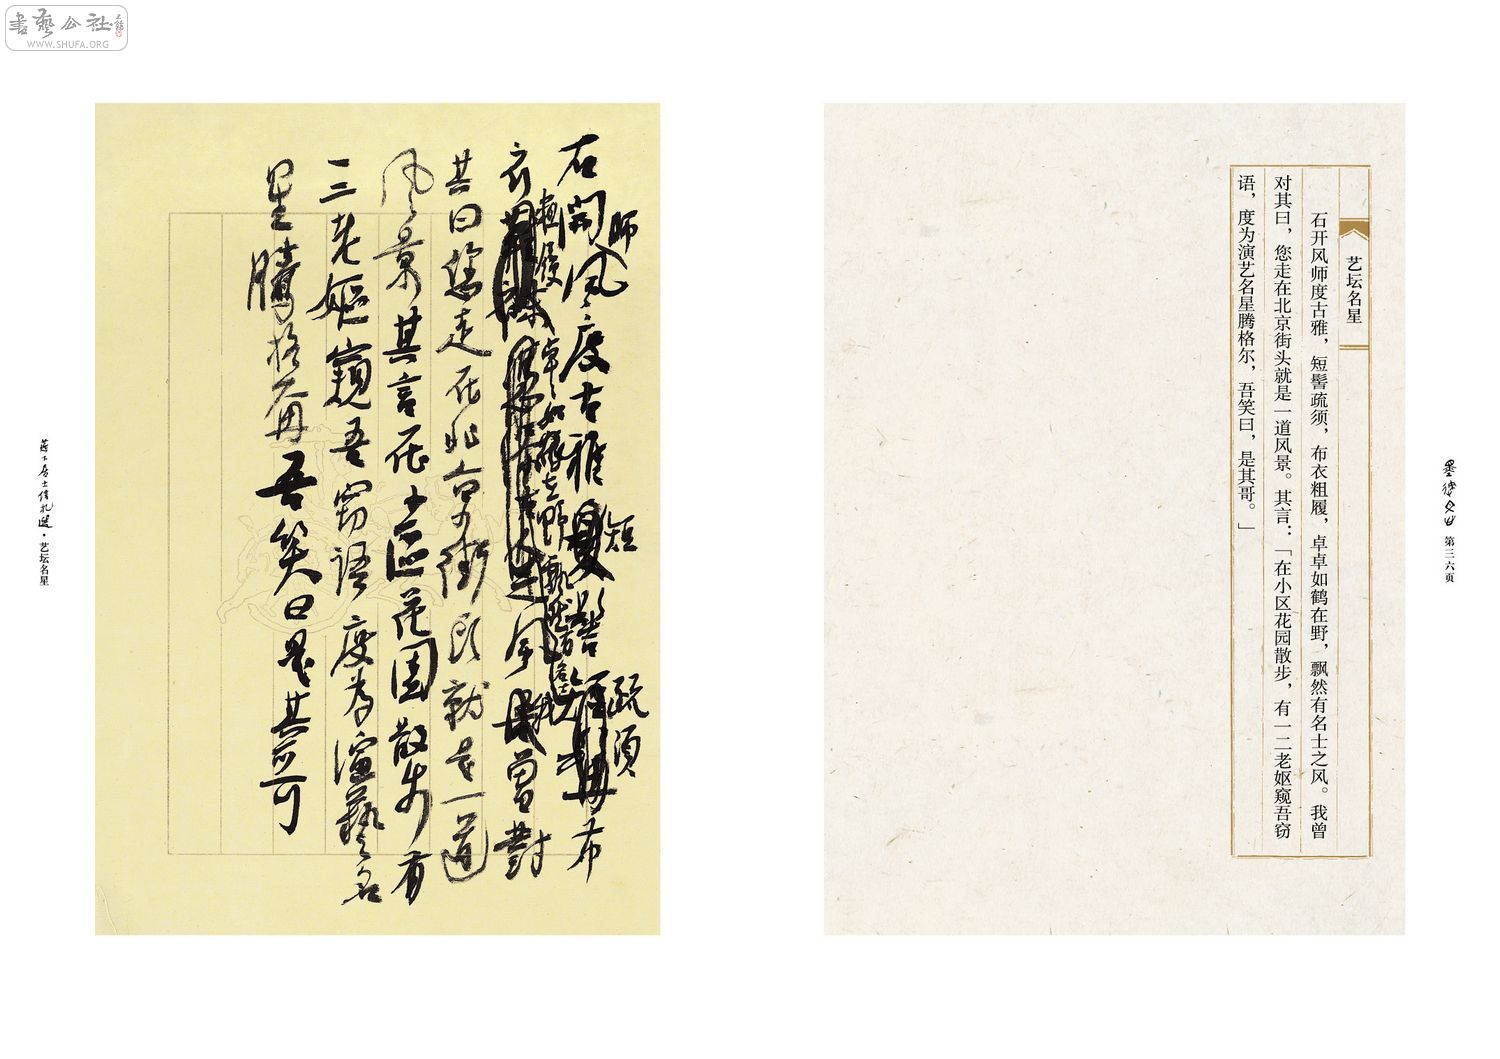 書藝公社
WWW.SHUFA.ORG
艺坛名星
石开风师度古雅，短髻疏须，布衣粗履，卓卓如鹤在野，飘然有名士之风。我曾
对其曰，您走在北京街头就是一道风景。其言：「在小区花园散步，有一二老妪窥吾窃
语，度为演艺名星腾格尔，吾笑曰，是其哥。」
第三六页
石開风度古雅
師
短
疏须
布
衣
粗履
卓卓如鶴在野
飘然有名士
風
曾對
其曰您走在北京街头就是一道
风景其言在小區花園散步有
一二老嫗窺吾窃语度为演藝名
星腾格尔吾笑曰是其哥
·艺坛名星